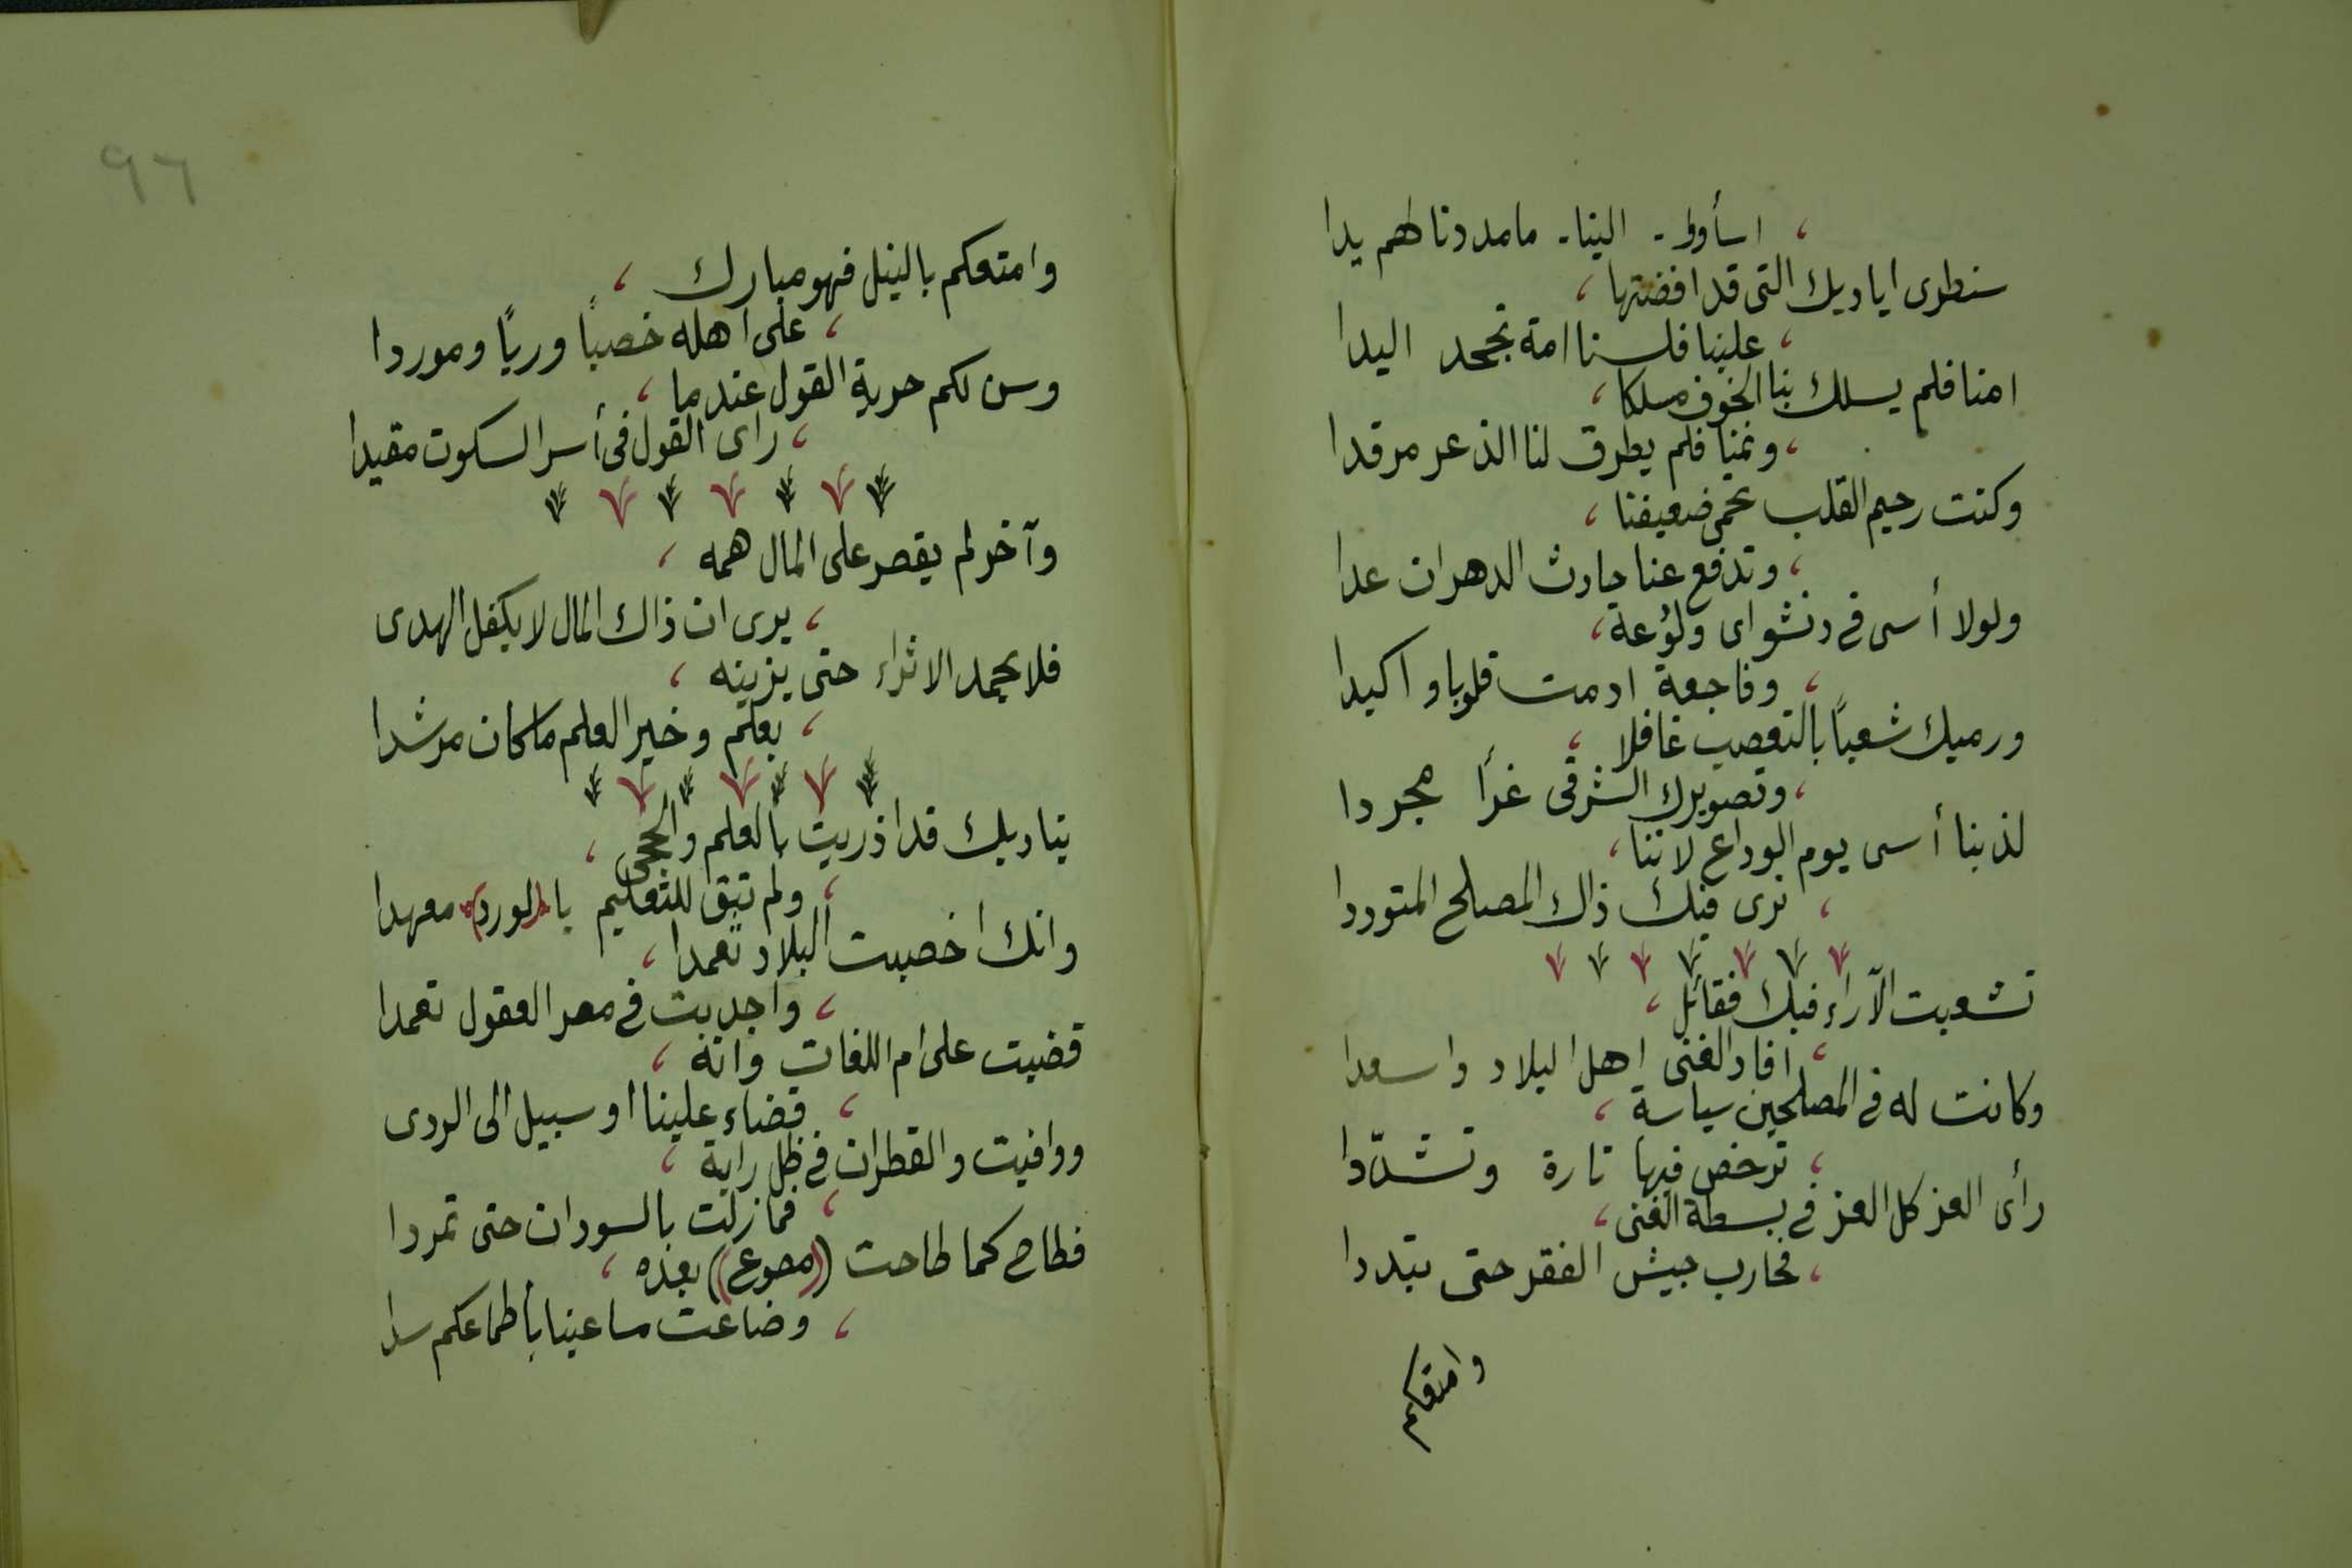 ، اسأوا - الينا - ما مددنا لهم يدا
سنطرى اياديك التى قد افضتها ،
، علينا فلسنا امة تجحد اليدا
امنا فلم يسلك بنا الخوف مسلكا ،
، ونمنا فلم يطرق لنا الذعر مرقدا
وكنت رحيم القلب تحمى ضعيفنا ،
، وتدفع عنا حادث الدهر ان عدا
ولولا أسى فى دنشواى ولوعة ،
، وفاجعة ادمت قلوبا و اكبدا
ورميك شعباً بالتعصب غافلا ،
، وتصويرك الشرقى غرأ مجردا
لذبنا أسى يوم الوداع لاننا ،
، نرى فيك ذاك المصلح المتوددا
تشعبت الآراء فيك فقائل ،
، افاد الغنى اهل البلاد واسعدا
وكانت له فى المصلحين سياسة ،
، ترخص فيها تارة وتشدّدا
رأى العز كل العز فى بسطة الغنى ،
، فحارب جيش الفقر حتى تبددا
وامتعكم
٩٦
وامتعكم بالنيل فهو مبارك ،
، على اهله خصباً ورياً وموردا
وسن لكم حرية القول عندما ،
، راى القول فى أسر السكوت مقيدا
وآخر لم يقصر على المال همه ،
، يرى ان ذاك المال لا يكفل الهدى
فلا يحمد الاثراء حتى يزينه ،
، بعلم وخير العلم ما كان مرشدا
يناديك قد ازريت بالعلم والحجى ،
، ولم تبق للتعليم يا (لورد) معهدا
وانك اخصبت البلاد تعمدا ،
، واجدبت فى مصر العقول تعمدا
قضيت على ام اللغات وانه ،
، قضاء علينا او سبيل الى الردى
ووافيت والقطران فى ظل راية ،
، فما زلت بالسودان حتى تمردا
فطاح كما طاحت ((مصوع)) بعده ،
، وضاعت مساعينا بأطماعكم سدا